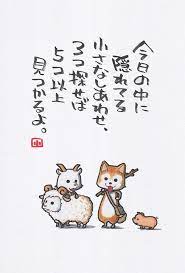 今日の中に
隠れてる
小さなしあわせ、
3コ探せば
5コ以上
見つかるよ。